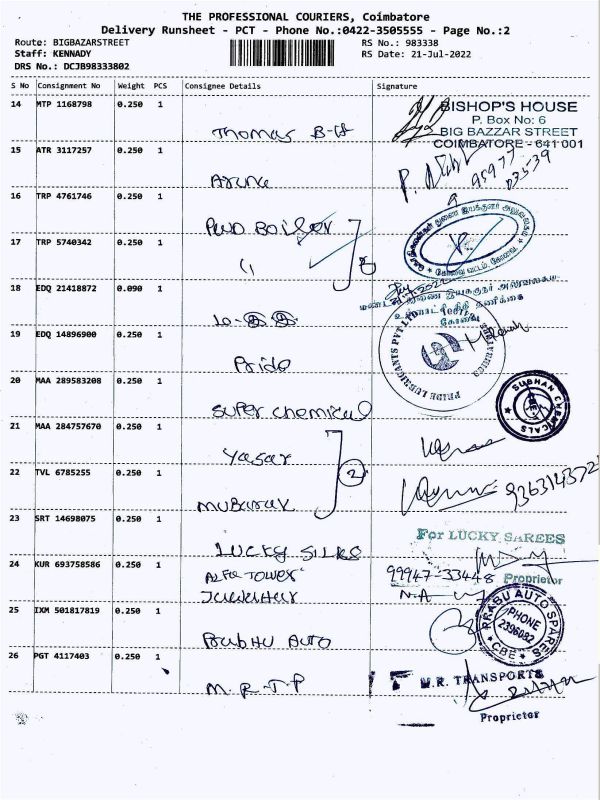 THE PROFESSIONAL COURIERS, Coimbatore
Delivery Runsheet - PCT - Phone No.:0422-3505555 - Page No.:2
Route: BIGBAZARSTREET
Staff: KENNADY
DRS No.: DCJB98333802
RS No.: 983338
RS Date: 21-Jul-2022
S No Consignment No Weight PCS Consignee Details Signature
14 MTP 1168798 0.250 1
Thomas B-H
BISHOP'S HOUSE
P. Box No: 6
BIG BAZZAR STREET
COIMBATORE - 641 001
15 ATR 3117257 0.250 1
Aruna
95977
03539
16 TRP 4761746 0.250 1
PWD Boiler
17 TRP 5740342 0.250 1
"
2
18 EDQ 21418872 0.090 1
19 EDQ 14896900 0.250 1
Prido
PRIDE LUBRICANTS PVT LTD
20 MAA 289583208 0.250 1
Super chemical
SUBHAN CHEMICALS
21 MAA 284757670 0.250 1
Yasar
22 TVL 6785255 0.250 1
Mubarak
2
9363143721
23 SRT 14698075 0.250 1
LUCKY SILKS
For LUCKY SAREES
Proprietor
24 KUR 693758586 0.250 1
Alfa Tower
Jawahar
99947-33448
25 IXM 501817819 0.250 1
Prabhu Auto
PRABU AUTO SPARES
PHONE
2396082
CBE
26 PGT 4117403 0.250 1
M.R.T.P
M.R. TRANSPORTS
Proprietor